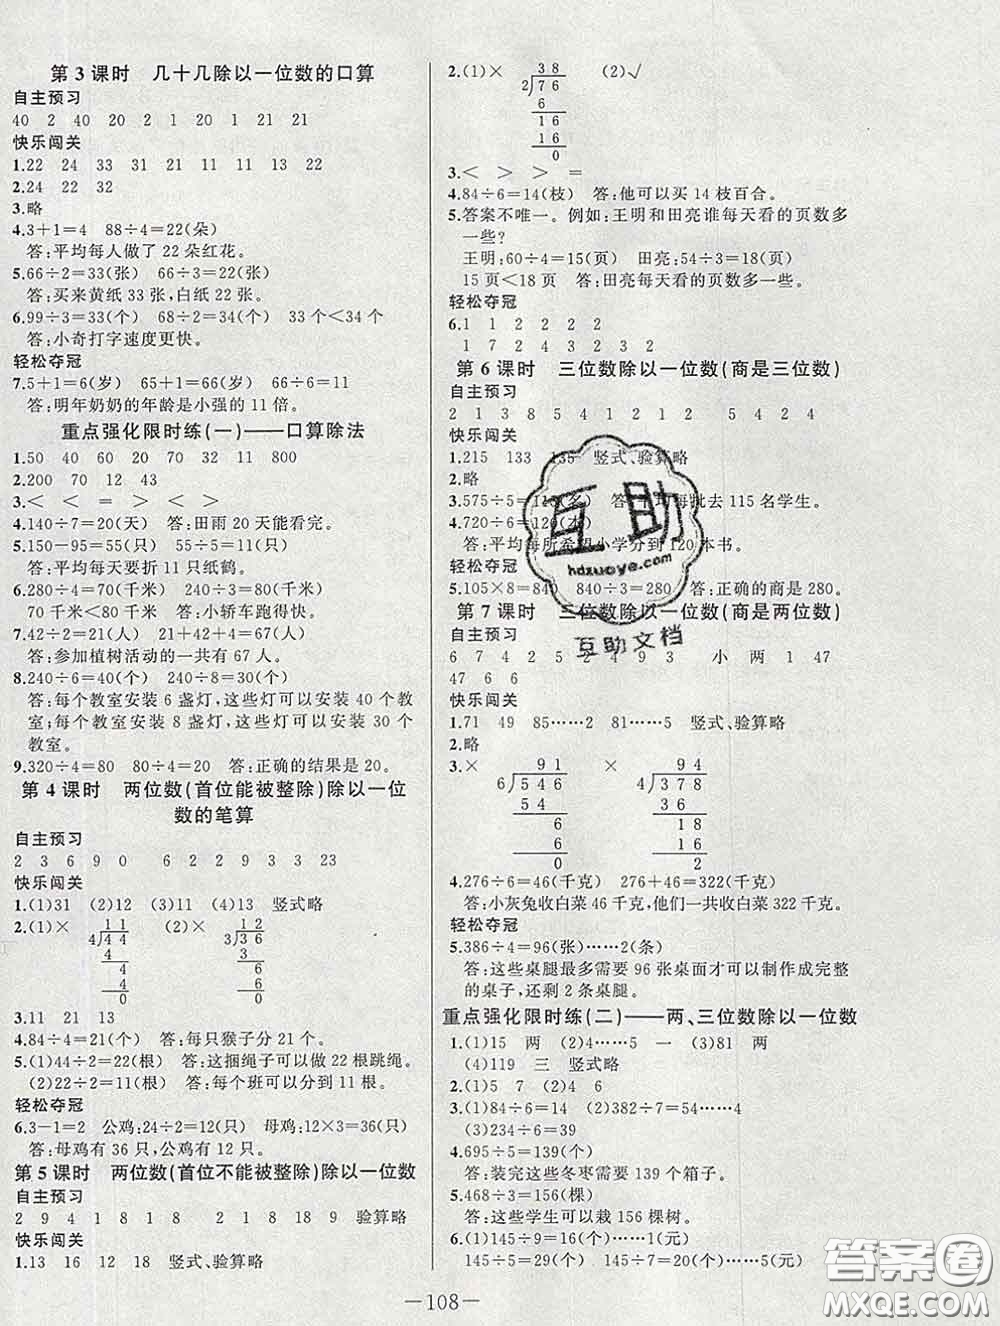 第3课时 几十几除以一位数的口算
自主预习
40 2 40 20 2 1 20 1 21 21
快乐闯关
1.22 24 33 31 21 11 11 13 22
2.24 22 32
3.略
4.3+1=4 88÷4=22(朵)
答:平均每人做了 22 朵红花。
5.66÷2=33(张) 44÷2=22(张)
答:买来黄纸 33 张,白纸 22 张。
6.99÷3=33(个) 68÷2=34(个) 33 个<34 个
答:小奇打字速度更快。
轻松夺冠
7.5+1=6(岁) 65+1=66(岁) 66÷6=11
答:明年奶奶的年龄是小强的 11 倍。
重点强化限时练(一)——口算除法
1.50 40 60 20 70 32 11 800
2.200 70 12 43
3.< < = > > <
4.140÷7=20(天) 答:田雨 20 天能看完。
5.150-95=55(只) 55÷5=11(只)
答:平均每天要折 11 只纸鹤。
6.280÷4=70(千米) 240÷3=80(千米)
70 千米<80 千米 答:小轿车跑得快。
7.42÷2=21(人) 21+42+4=67(人)
答:参加植树活动的一共有 67 人。
8.240÷6=40(个) 240÷8=30(个)
答:每个教室安装 6 盏灯,这些灯可以安装 40 个教
室;每个教室安装 8 盏灯,这些灯可以安装 30 个
教室。
9.320÷4=80 80÷4=20 答:正确的结果是 20。
第4课时 两位数(首位能被整除)除以一位
数的笔算
自主预习
2 3 6 9 0 6 2 2 9 3 3 23
快乐闯关
1.(1)31 (2)12 (3)11 (4)13 竖式略
2.(1)× 11 (2)× 12
4√44 3√36
4 3
4 6
4 6
0 0
3.11 21 13
4.84÷4=21(个) 答:每只猴子分 21 个。
5.(1)44÷2=22(根) 答:这捆绳子可以做 22 根跳绳。
(2)22÷2=11(根) 答:每个班可以分到 11 根。
轻松夺冠
6.3-1=2 公鸡:24÷2=12(只) 母鸡:12×3=36(只)
答:母鸡有 36 只,公鸡有 12 只。
第5课时 两位数(首位不能被整除)除以一位数
自主预习
2 9 4 1 8 1 8 2 1 8 18 9 验算略
快乐闯关
1.13 16 12 18 竖式、验算略
2.(1)× 38 (2)√
2√76
6
16
16
0
3.< > > =
4.84÷6=14(枝) 答:他可以买 14 枝百合。
5.答案不唯一。例如:王明和田亮谁每天看的页数多
一些?
王明:60÷4=15(页) 田亮:54÷3=18(页)
15 页<18 页 答:田亮每天看的页数多一些。
轻松夺冠
6.1 1 2 2 2 2
1 7 2 4 3 2 3 2
第6课时 三位数除以一位数(商是三位数)
自主预习
2 1 3 8 5 4 1 2 1 2 5 4 2 4
快乐闯关
1.215 133 135 竖式、验算略
2.略
3.575÷5=115(名) 答:平均每批去 115 名学生。
4.720÷6=120(本)
答:平均每所希望小学分到 120 本书。
轻松夺冠
5.105×8=840 840÷3=280 答:正确的商是 280。
第7课时 三位数除以一位数(商是两位数)
自主预习
6 7 4 2 5 2 4 9 3 小 两 1 47
47 6 6
快乐闯关
1.71 49 85……2 81……5 竖式、验算略
2.略
3.× 91 × 94
6√546 4√378
54 36
6 18
6 16
0 2
4.276÷6=46(千克) 276+46=322(千克)
答:小灰兔收白菜 46 千克,他们一共收白菜 322 千克。
轻松夺冠
5.386÷4=96(张)……2(条)
答:这些桌腿最多需要 96 张桌面才可以制作成完整
的桌子,还剩 2 条桌腿。
重点强化限时练(二)——两、三位数除以一位数
1.(1)15 两 (2)4……5 一 (3)81 两
(4)119 三 竖式略
2.(1)5 7 (2)4 6
3.(1)84÷6=14 (2)382÷7=54……4
(3)234÷9=26
4.695÷5=139(个)
答:装完这些冬枣需要 139 个箱子。
5.468÷3=156(棵)
答:这些学生可以栽 156 棵树。
6.(1)145÷9=16(个)……1(元)
145÷5=29(个) 145÷7=20(个)……5(元)
—108—
互助
hdzuoye.com
互助文档
答案圈
MXQE.COM